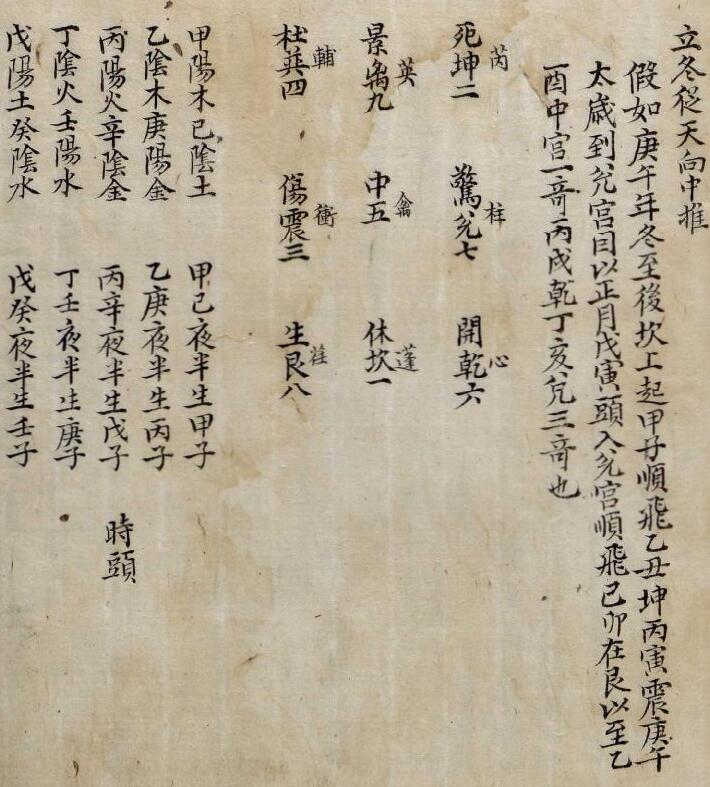 立冬從天向中推
假如庚午年冬至後坎上起甲子順飛乙丑坤丙寅震庚午
太歲到兊宮囙以正月戊寅頭入兊宮順飛己卯在艮以至乙
酉中宮一竒丙戌乾丁亥兊三竒也
芮 柱 心
死坤二 驚兊七 開乾六
英 禽 蓬
景离九 中五 休坎一
輔 衝 任
杜巽四 傷震三 生艮八
甲陽木己陰土 甲己夜半生甲子
乙陰木庚陽金 乙庚夜半生丙子
丙陽火辛陰金 丙辛夜半生戊子 時頭
丁陰火壬陽水 丁壬夜半生庚子
戊陽土癸陰水 戊癸夜半生壬子